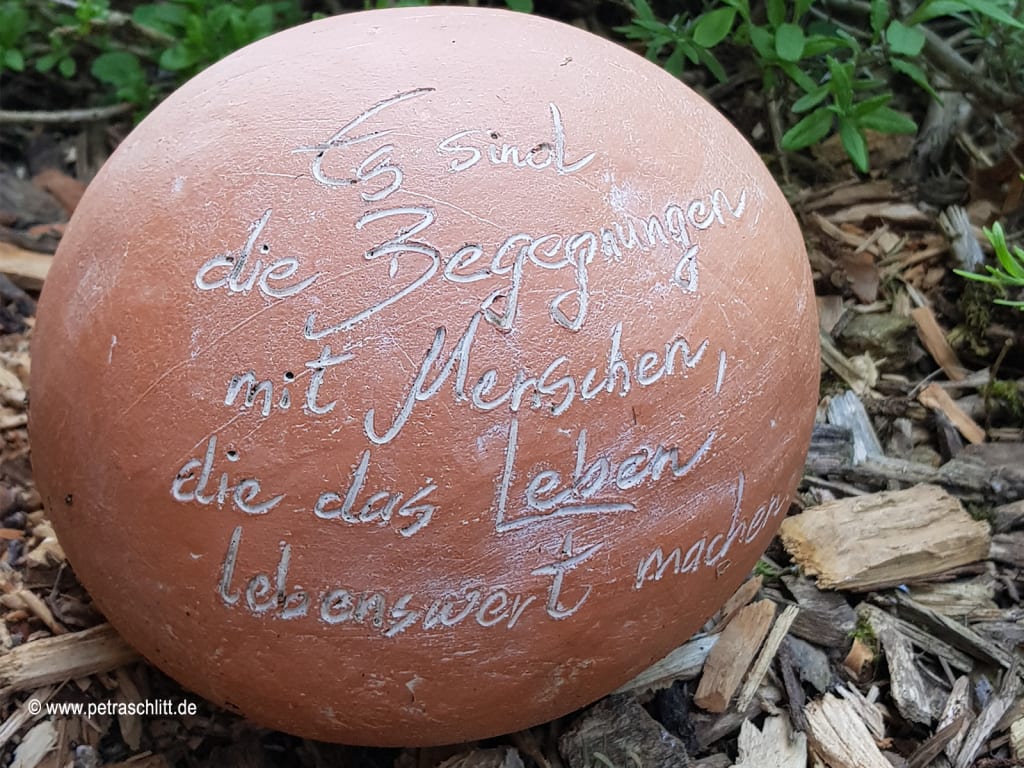 Es sind
die Begegnungen
mit Menschen,
die das Leben
lebenswert machen
© www.petraschlitt.de